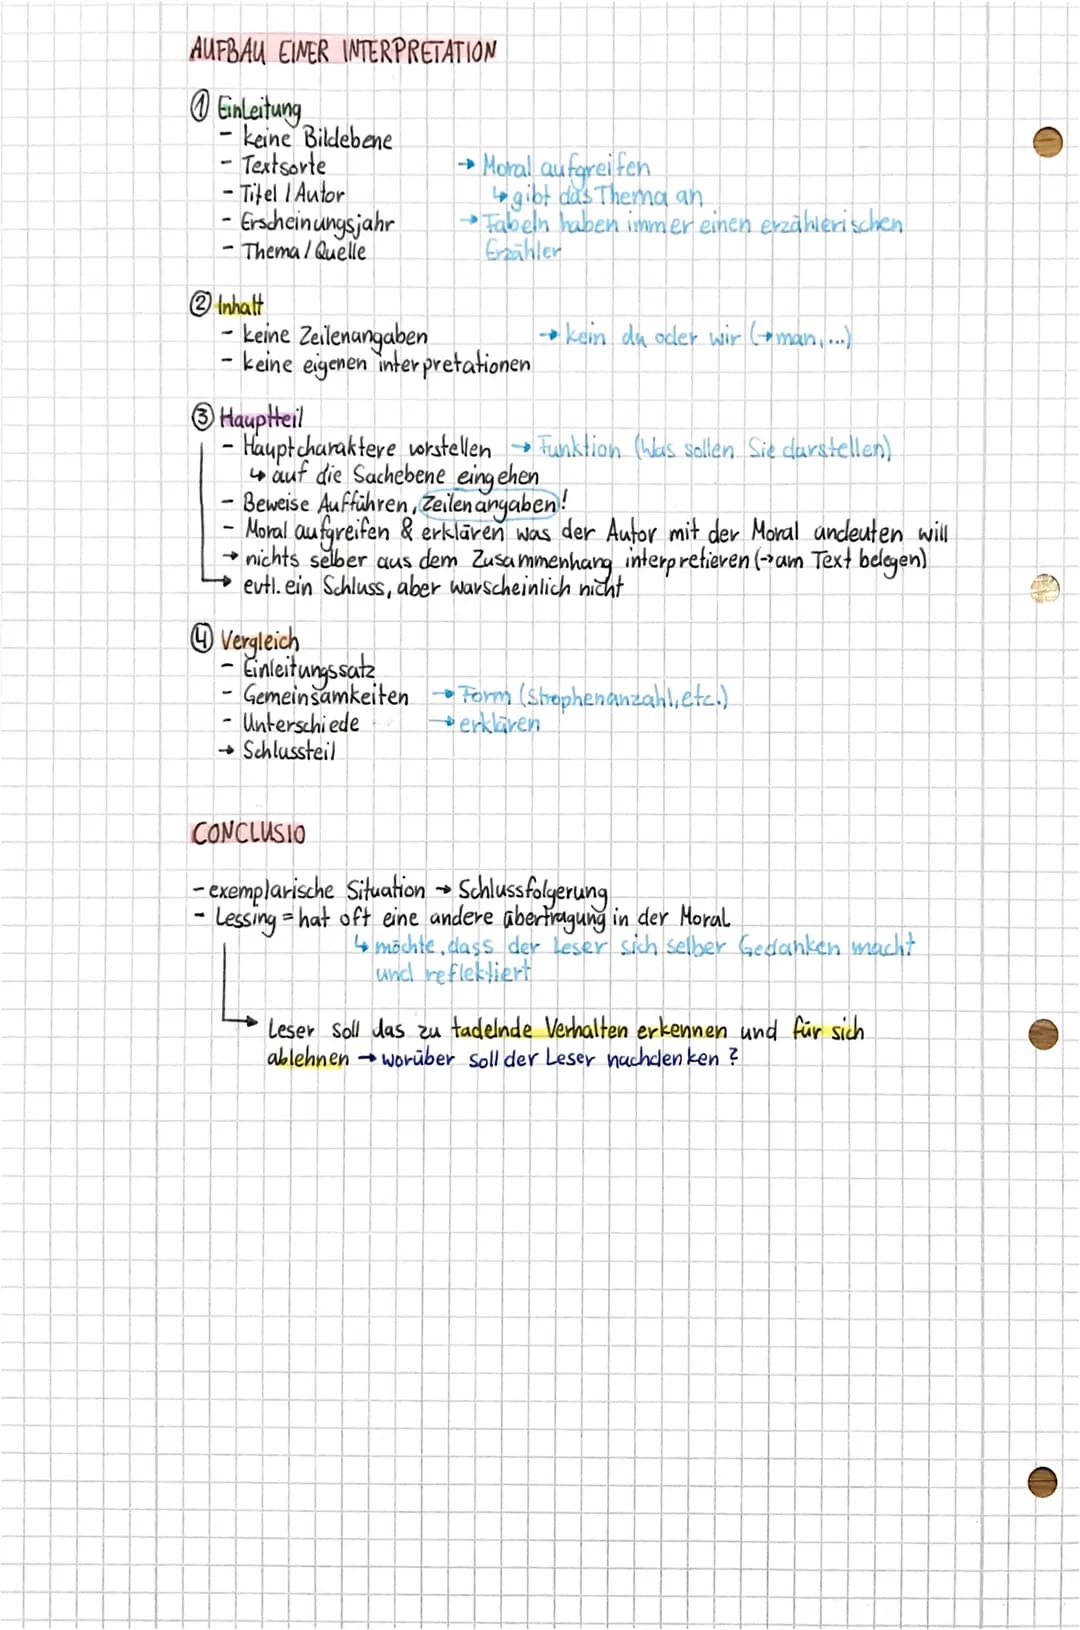 AUFBAU EINER INTERPRETATION
① Einleitung
- keine Bildebene
- Textsorte → Moral aufgreifen
- Titel / Autor ↳ gibt das Thema an
- Erscheinungsjahr → Fabeln haben immer einen erzählerischen
- Thema / Quelle Erzähler
② Inhalt
- keine Zeilenangaben → kein du oder wir (→man,...)
- keine eigenen interpretationen
③ Hauptteil
- Hauptcharaktere vorstellen → Funktion (Was sollen Sie darstellen)
↳ auf die Sachebene eingehen
- Beweise Aufführen, Zeilenangaben!
- Moral aufgreifen & erklären was der Autor mit der Moral andeuten will
→ nichts selber aus dem Zusammenhang interpretieren (→am Text belegen)
→ evtl. ein Schluss, aber warscheinlich nicht
④ Vergleich
- Einleitungssatz
- Gemeinsamkeiten → Form (Strophenanzahl, etc.)
- Unterschiede → erklären
→ Schlussteil
CONCLUSIO
- exemplarische Situation → Schlussfolgerung
- Lessing = hat oft eine andere übertragung in der Moral
↳ möchte, dass der Leser sich selber Gedanken macht
und reflektiert
→ Leser soll das zu tadelnde Verhalten erkennen und für sich
ablehnen → worüber soll der Leser nachdenken?